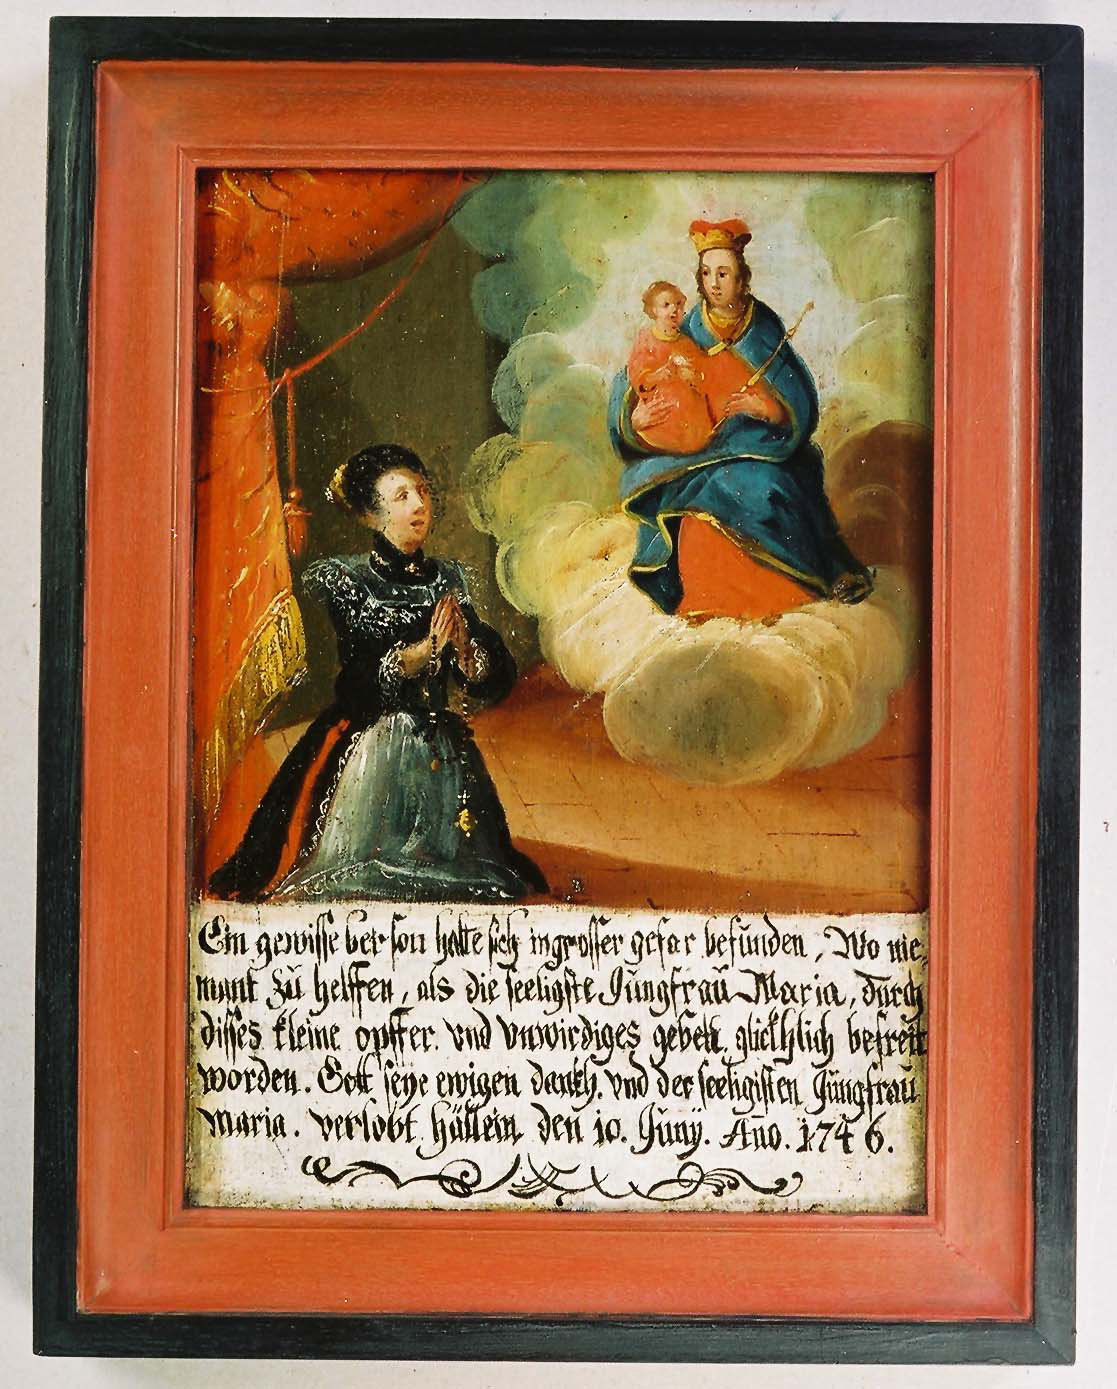 Ein gewisse berson hatte sich in grosser gefar befunden, Wo nie¬
mant zu helffen, als die seeligste Jungfrau Maria, durch
disses kleine opffer. vnd vnwirdiges gebett. glickhlich befreit
worden. Gott seye ewigen dankh. vnd der seeligisten Jungfrau
Maria. verlobt. Hällein den 10. Junÿ. Año. 1746.